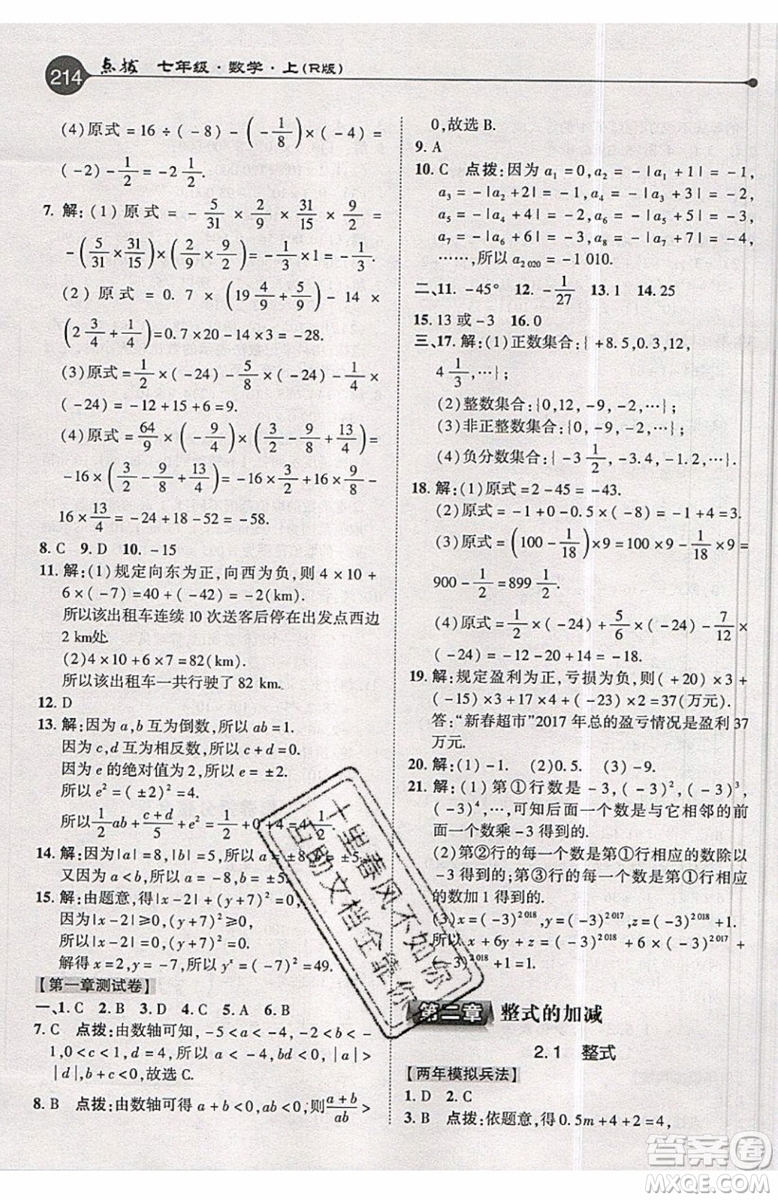 214 点拨 七年级·数学·上(R版)
(4)原式=16÷(-8)-(-1/8)×(-4)=
(-2)-1/2=-2 1/2.
7. 解:(1)原式=-5/31×9/2×31/15×2/9=
-(5/31×31/15)×(9/2×2/9)=-1/3×1=-1/3.
(2)原式=0.7×(19 4/9+5/9)-14×
(2 3/4+1/4)=0.7×20-14×3=-28.
(3)原式=1/2×(-24)-5/8×(-24)+7/12×
(-24)=-12+15-14=-11.
(4)原式=64/9×(-9/4)×(3/2-9/8+23/16×2)=
-16×(3/2-9/8+23/8)=-16×(3/2+14/8)=
-16×13/4=-52.
8. C 9. D 10. -15
11. 解:(1)规定向东为正,向西为负,得 4×10+
6×(-7)=40+(-42)=-2(km).
所以该出租车连续 10 次送客后停在出发点西边
2 km处.
(2)4×10+6×7=82(km).
所以该出租车一共行驶了 82 km.
12. D
13. 解:因为 a,b 互为倒数,所以 ab=1.
因为 c,d 互为相反数,所以 c+d=0.
因为 e 的绝对值为 2,所以 e²=(±2)²=4.
所以1/2ab+(c+d)/5+e²=1/2+0+4=4 1/2.
14. 解:因为|a|=8,|b|=5,所以 a=±8,b=±5.
又因为 a+b>0,所以 a=8,b=±5.
15. 解:由题意,得|x-2|+(y+7)²=0.
因为|x-2|≥0,(y+7)²≥0,
所以|x-2|=0,(y+7)²=0.
解得 x=2,y=-7,所以 yˣ=(-7)²=49.
【第一章测试卷】
一、1. C 2. B 3. D 4. D 5. A 6. B
7. C 点拨:由数轴可知,-5<a<-4,-2<b<
-1,0<c<1,d=4,所以|a|>4,b+c<0,bd<
0,故选 C.
8. B 点拨:由数轴可得 a+b<0,ab>0,则(a+b)/ab>
0,故选 B.
9. A
10. C 点拨:因为 a₁=0,a₂=-|a₁+1|=-1,
a₃=-|a₂+2|=-1,a₄=-|a₃+3|=-2,
a₅=-|a₄+4|=-2,a₆=-|a₅+5|=-3,
a₇=-|a₆+6|=-3,a₈=-|a₇+7|=-4,
……,所以 a₂₀₂₀=-1 010.
二、11. -45° 12. -1/27 13. 1 14. 25
15. 13 或-3 16. 0
三、17. 解:(1)正数集合:{+8.5,0.3,12,
4 1/3,…};
(2)整数集合:{0,12,-9,-2,…};
(3)非正整数集合:{0,-9,-2,…};
(4)负分数集合:{-3 1/2,-3.4,-1.2,…}.
18. 解:(1)原式=2-45=-43.
(2)原式=-1+0-0.5×(-8)=-1+4=3.
(3)原式=(100-1/18)×9=100×9-1/18×9=
900-1/2=899 1/2.
(4)原式=1/2×(-24)-5/8×(-24)+7/12×
(-24)=-12+15-14=-11.
19. 解:规定盈利为正,亏损为负,则(+20)×3+
(-15)×3+17×4+(-23)×2=60+
(-45)+68+(-46)=37(万元).
答:“新春超市”2017 年总的盈亏情况是盈利 37
万元.
20. 解:(1)-1. (2)0.5. (3)-9.
21. 解:(1)第①行数是-3,(-3)²,(-3)³,
(-3)⁴,…,可以看出每一个数是与它相邻的前
一个数乘-3 得到的.
(2)第②行的每一个数是第①行相应的数除以
-3 得到的;第③行的每一个数是第①行相应
的数加 1 得到的.
(3)x=(-3)²⁰¹⁸,y=(-3)²⁰¹⁷,z=(-3)²⁰¹⁸+
1,所以 x+6y+z=1.
第二章 整式的加减
2.1 整式
【两年模拟兵法】
1. D 2. C
3. B 点拨:依题意,得 0.5m+4+2=4,
十里春风不如你
百助文档全靠你
答案圈
MXQE.COM